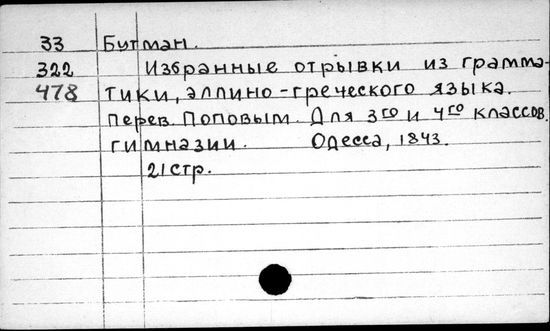 33 Бутман.
322 Избранные отрывки из грамма-
478 тики, эллино-греческого языка.
перев. Поповым. Для 3го и 4го классов.
гимназии. Одесса, 1843.
21 стр.